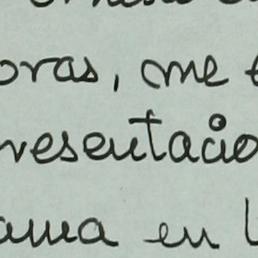 oras, me
resentacio
ama en